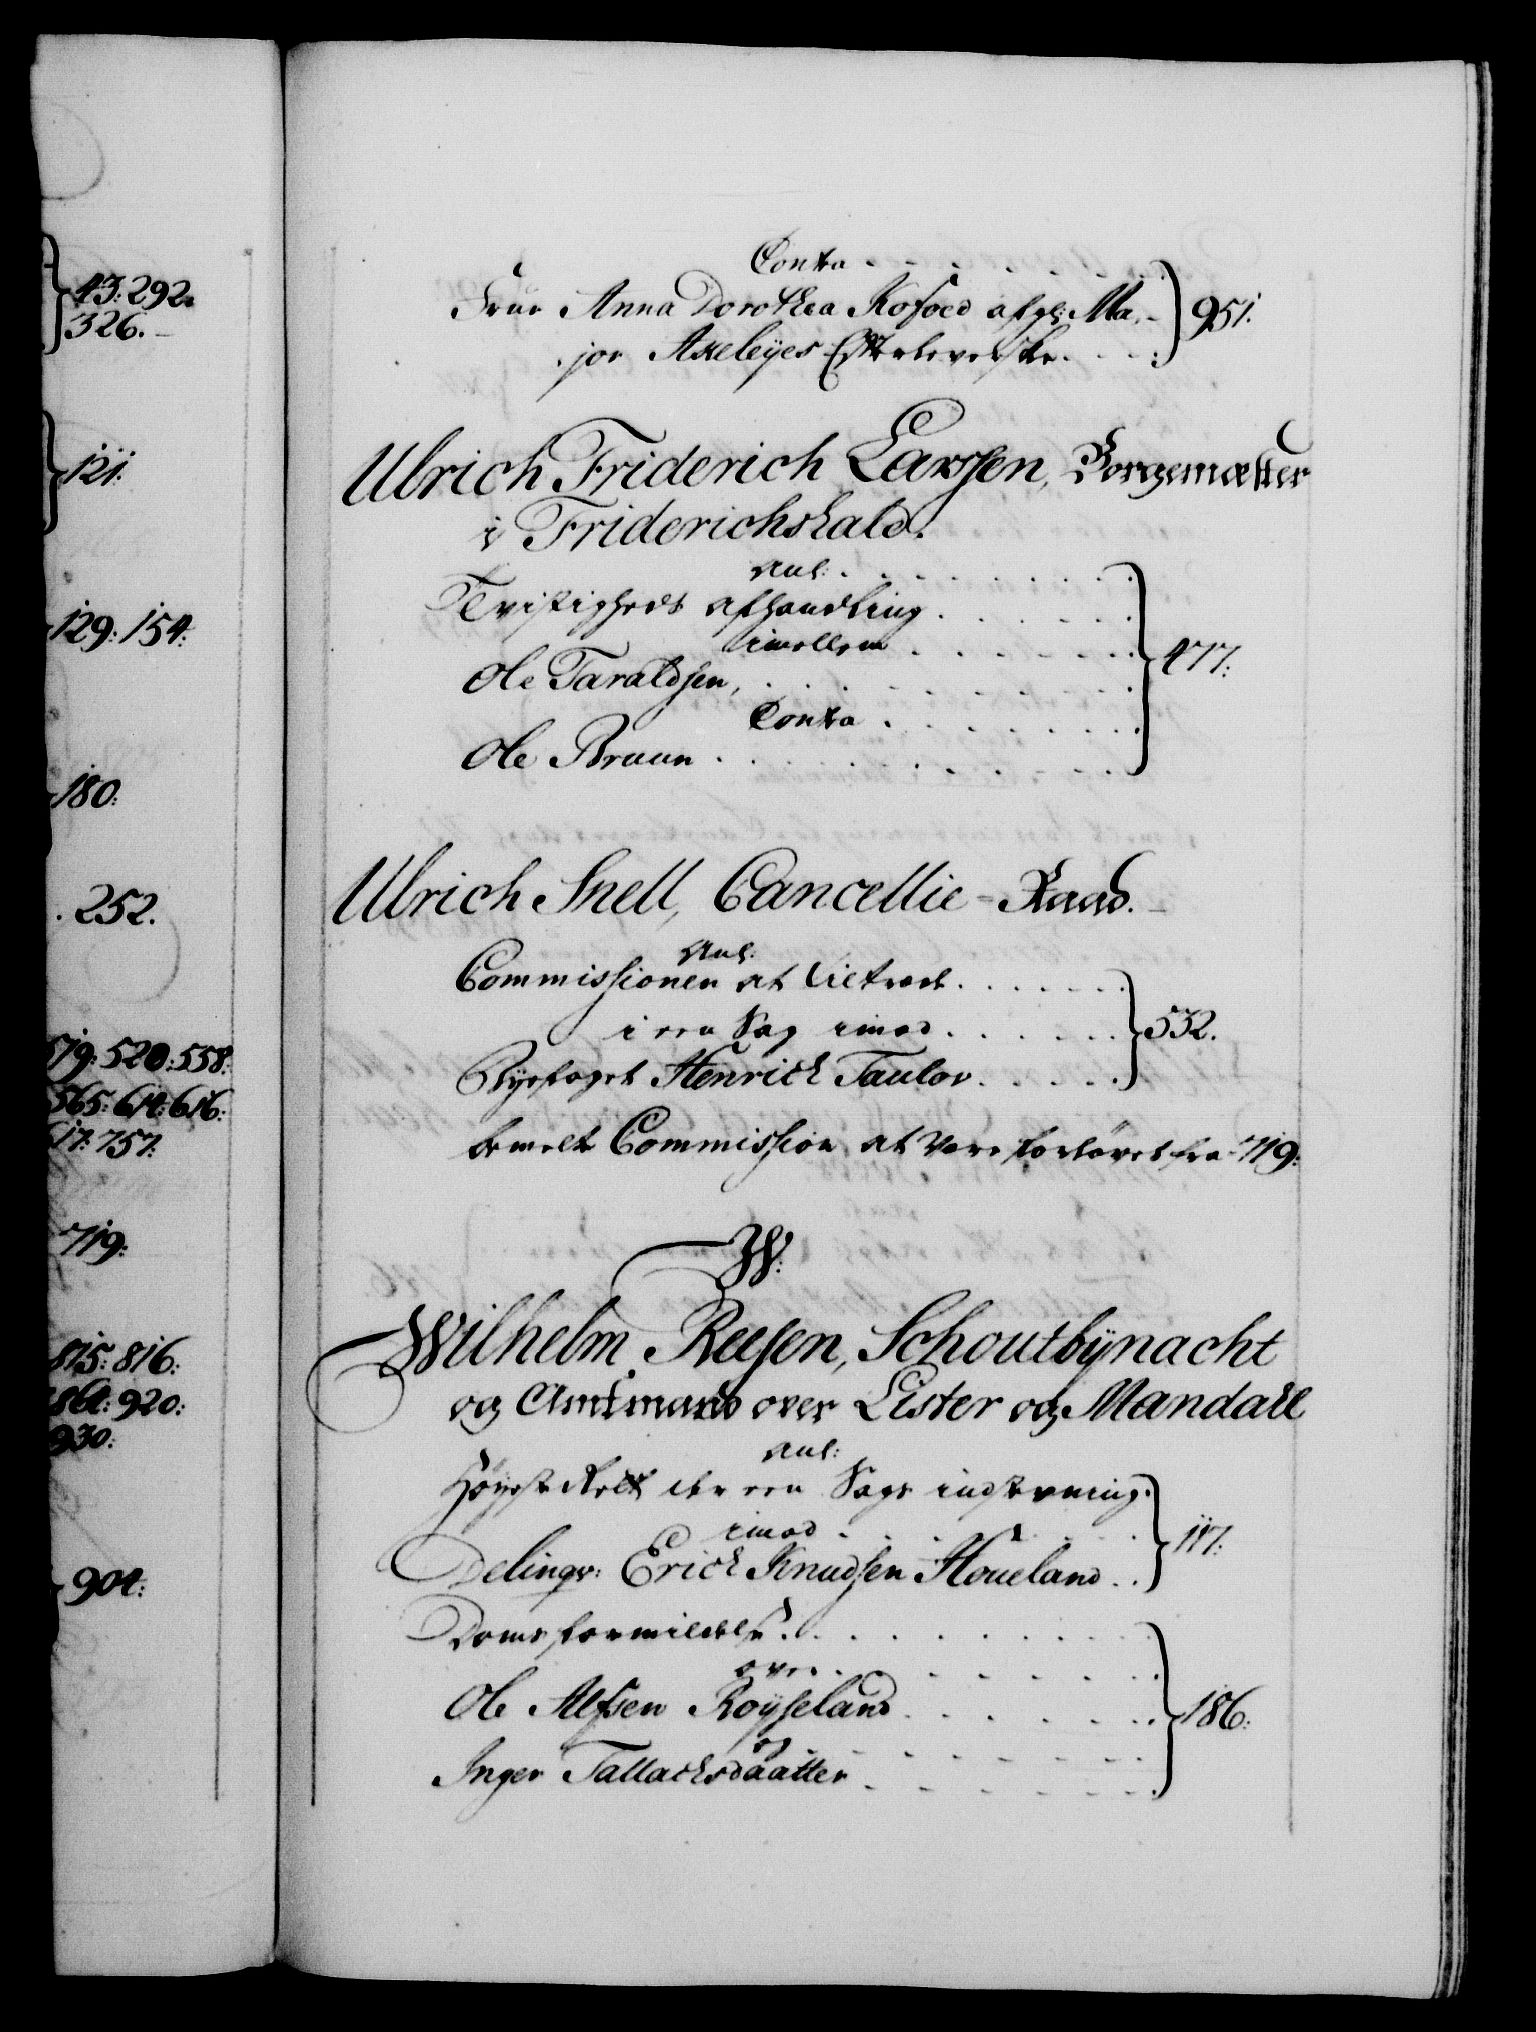 43: 292.
326.
121.
129: 154:
180:
252.
519: 520: 558:
565: 614: 616:
617: 757:
719:
815: 816:
864: 920:
930:
904:
Contra
Frue Anna Dorothea Kofoed afgl: Ma- 951.
jor Axeleÿes Efterleverske
Ulrich Friderich Larssen, Borgemæster
i Friderichshald.
Anl:
Tvistigheds afhandling
imellem
Ole Taraldsen, 477:
Contra
Ole Bruun
Ulrich Snell, Cancellie-Raad.
Anl:
Commissionen at tiltræde
i een Sag imod 532.
Byefoget Henrich Taulov
bemelte Commission at være forløvet fra 719:
W:
Wilhelm Reesen, Schoutbÿnacht
og Amtmand over Lister og Mandall
Anl:
Høyeste Rett der een Sags indstevning
imod 117:
Delinqv: Erich Knudsen Houeland
Doms formildelse
over
Ole Alfsen Röyseland 186:
og
Inger Tallachsdaatter